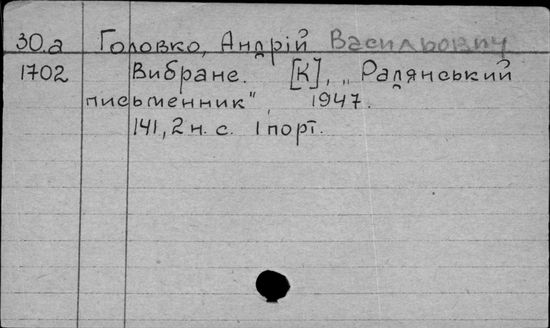 30.а Головко, Андрій Васильович
1702 Вибране. [К], „Радянський
письменник", 1947.
141, 2 н. с. 1 порт.